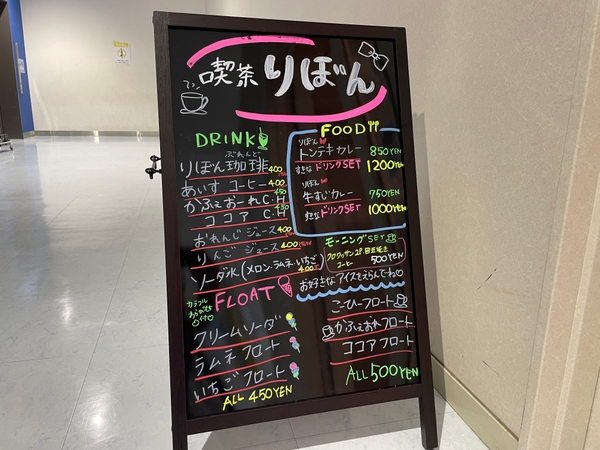 喫茶 りぼん
DRINK
ぶれんど
りぼん珈琲 400
あいす コーヒー 400
かふぇおーれ C・H 450
ココア C・H 450
おれんじジュース 400
りんごジュース 400YEN
ソーダ水(メロン・ラムネ・いちご) 400
FOOD
りぼん
トンテキカレー 850YEN
すきなドリンクSET 1200YEN
りぼん
牛すじカレー 750YEN
すきなドリンクSET 1000YEN
モーニングSET
クロワッサン2P 目玉焼き
コーヒー 500YEN
お好きなアイスをえらんでね♡
カラフル
FLOAT
クリームソーダ
ラムネフロート
いちごフロート
ALL 450YEN
こーひーフロート
かふぇおれフロート
ココアフロート
ALL 500YEN